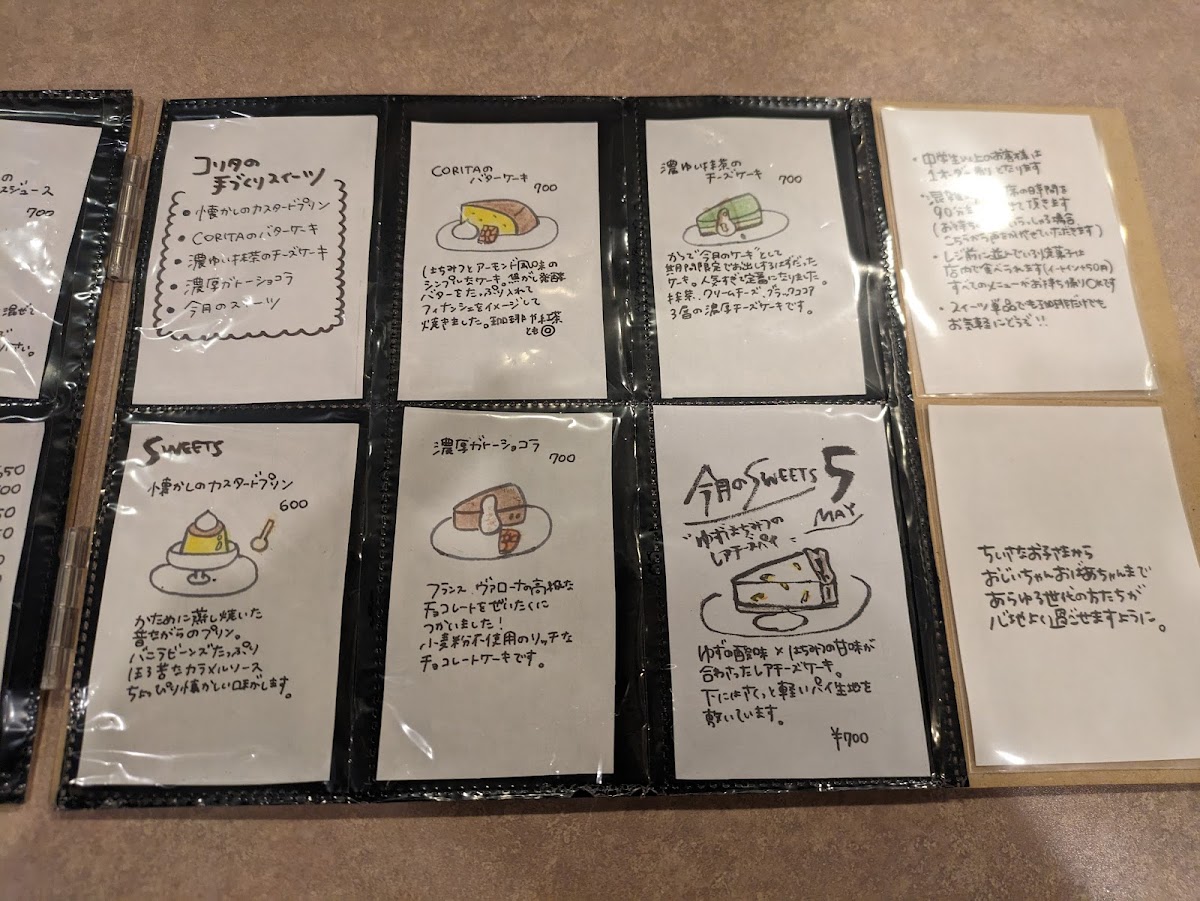 の
スジュース
700
混ぜて
で
さい。
650
00
50
50
コリタの
手づくりスイーツ
・懐かしのカスタードプリン
・CORITAのバターケーキ
・濃ゆい抹茶のチーズケーキ
・濃厚ガトーショコラ
・今月のスイーツ
CORITAの
バターケーキ
700
はちみつとアーモンド風味の
シンプルなケーキ。焦がし発酵
バターをたっぷり入れて
フィナンシェをイメージして
焼きました。珈琲や紅茶
とも◎
濃ゆい抹茶の
チーズケーキ
700
かつて今月のケーキとして
期間限定でお出しするはずだった
ケーキ。人気すぎて定番になりました。
抹茶、クリームチーズ、ブラックココア
3層の濃厚チーズケーキです。
・中学生以上のお客様は
の時間は
90分
(お待ち
こちらからお声がけさせていただきます)
・レジ前に並んでいる焼菓子は
店内で食べられます(イートイン+50円)
すべてのメニューがお持ち帰りOKです
・スイーツ単品でも珈琲だけでも
お気軽にどうぞ!!
SWEETS
懐かしのカスタードプリン
600
かために蒸し焼いた
昔ながらのプリン。
バニラビーンズたっぷり
ほろ苦なカラメルソース
ちょっぴり懐かしい味がします。
濃厚ガトーショコラ
700
フランス、ヴァローナの高級な
チョコレートをぜいたくに
つかいました!
小麦粉不使用のリッチな
チョコレートケーキです。
今月のSWEETS 5
MAY
"ゆずはちみつの
レアチーズパイ"
ゆずの酸味×はちみつの甘味が
合わさったレアチーズケーキ。
下にはさくっと軽いパイ生地を
敷いています。
¥700
ちいさなお子さまから
おじいちゃんおばあちゃんまで
あらゆる世代の方たちが
心地よく過ごせますように。